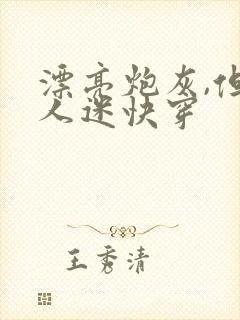 漂亮炮灰,但
人迷快穿
王秀清